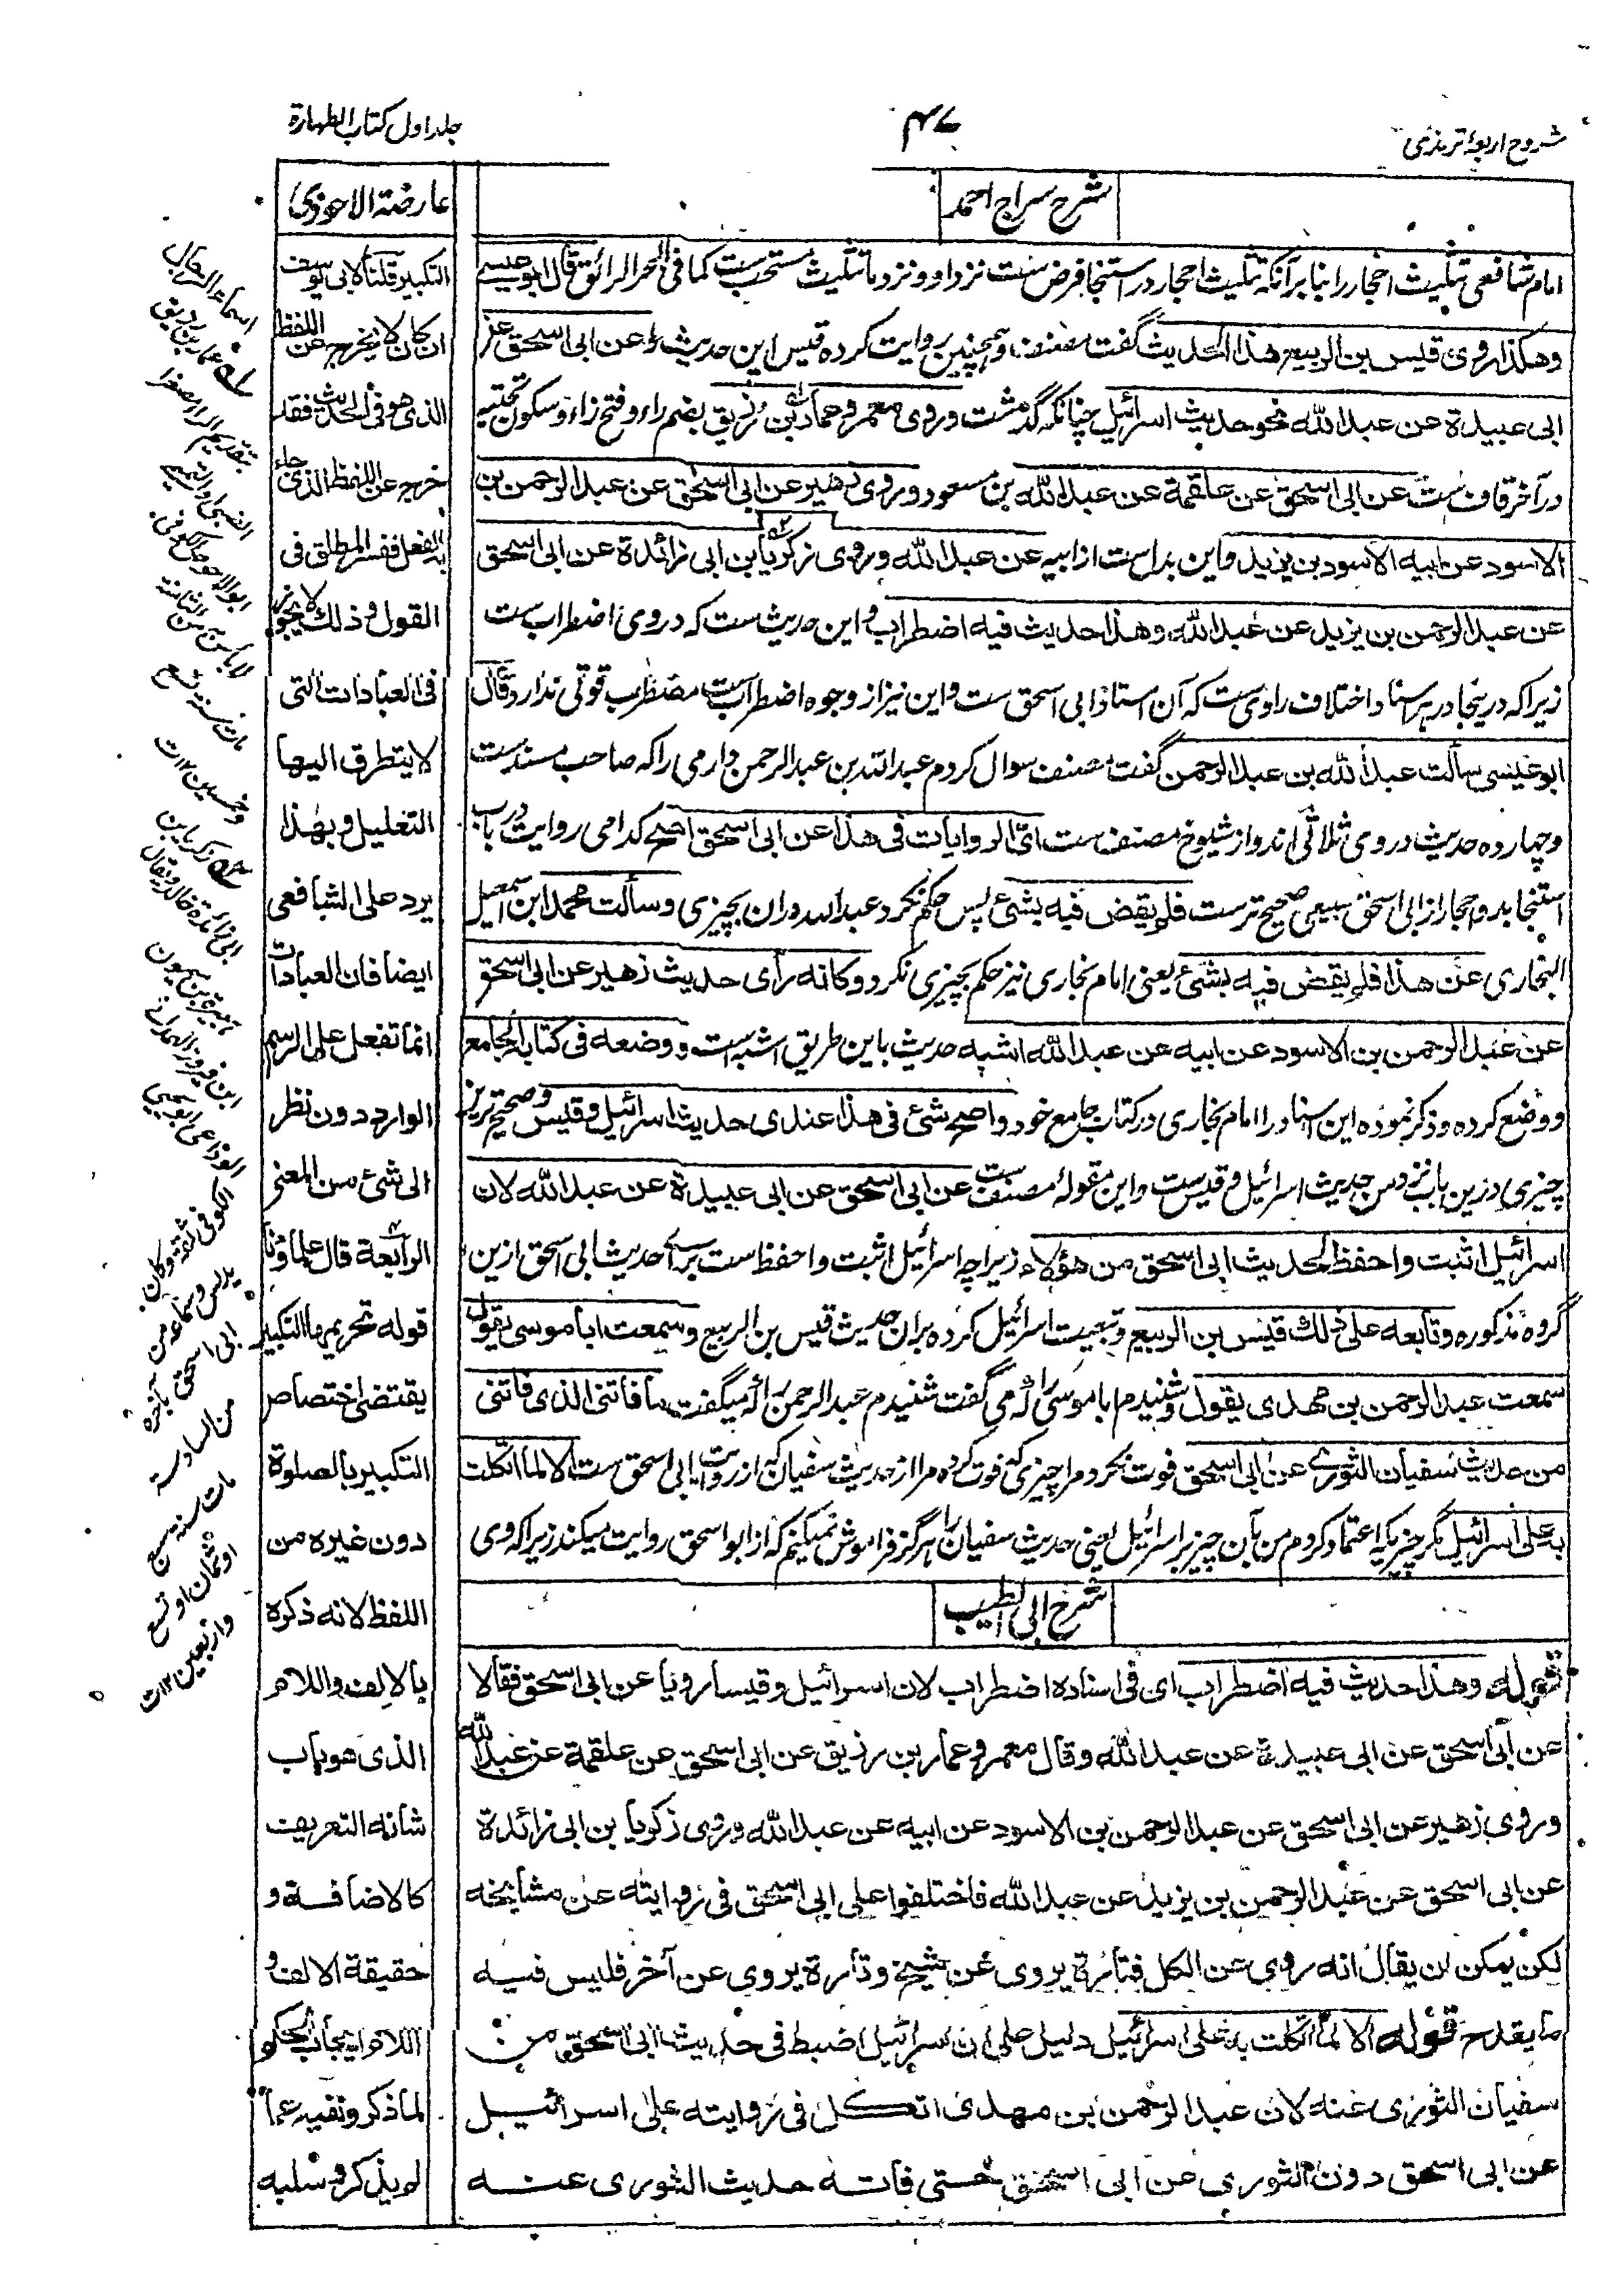 شروح اربعۂ ترمذی
۴۷
جلد اول کتاب الطهارة
شرح سراج احمد
امام شافعی تثلیث احجار را بنا بر آنکه تثلیث احجار در استنجا فرض ست نزد او و نزد ما تثلیث مستحب ست کما فی البحر الرائق قال ابو عیسی
وهکذا روی قیس بن الربیع هذا الحدیث گفت مصنف و همچنین روایت کرده قیس این حدیث را عن ابی اسحق عن
ابی عبیدة عن عبد الله نحو حدیث اسرائیل چنانکه گذشت وروی معمر وعمار بن رزیق بضم راء و فتح زاء و سکون تحتیه
در آخر قاف ست عن ابی اسحق عن علقمة عن عبد الله بن مسعود وروی زهیر عن ابی اسحق عن عبد الرحمن بن
الاسود عن ابیه الاسود بن یزید واین بدل ست از ابیه عن عبد الله وروی زکریا بن ابی زائدة عن ابی اسحق
عن عبد الرحمن بن یزید عن عبد الله وهذا حدیث فیه اضطراب و این حدیث ست که در وی اضطراب ست
زیرا که درینجا در هر اسناد اختلاف راوی ست که آن استاذ ابی اسحق ست و این نیز از وجوه اضطراب ست مضطرب قوتی ندارد قال
ابو عیسی سألت عبد الله بن عبد الرحمن گفت مصنف سوال کردم عبد الله بن عبد الرحمن دارمی را که صاحب مسند ست
و چهارده حدیث در وی ثلاثی اند و از شیوخ مصنف ست ای الروایات فی هذا عن ابی اسحق اصح کدامی روایت در باب
استنجا بدو احجار از ابی اسحق سبیعی صحیح ترست فلم یقض فیه بشئ پس حکم نکرد عبد الله دران بچیزی وسألت محمد ابن اسمعیل
البخاری عن هذا فلم یقض فیه بشئ یعنی امام بخاری نیز حکم بچیزی نکرد وکانه رأی حدیث زهیر عن ابی اسحق
عن عبد الرحمن بن الاسود عن ابیه عن عبد الله اشبه حدیث باین طریق اشبه ست ووضعه فی کتابه الجامع
و وضع کرده و ذکر نموده این اسناد را امام بخاری در کتاب جامع خود واصح شئ فی هذا عندی حدیث اسرائیل وقیس و صحیح تر ین
چیزی درین باب نزد من حدیث اسرائیل و قیس ست و این مقولۂ مصنف ست عن ابی اسحق عن ابی عبیدة عن عبد الله لان
اسرائیل اثبت واحفظ لحدیث ابی اسحق من هؤلاء زیرا چه اسرائیل اثبت و احفظ ست برائے حدیث ابی اسحق ازین
گروه مذکوره وتابعه علی ذلك قیس بن الربیع و تبعیت اسرائیل کرده بران حدیث قیس بن الربیع وسمعت ابا موسی یقول
سمعت عبد الرحمن بن مهدی یقول و شنیدم ابا موسی را که می گفت شنیدم عبد الرحمن را که میگفت ما فاتنی الذی فاتنی
من حدیث سفیان الثوری عن ابی اسحق فوت نکرد مرا چیزی که فوت کرده مرا از حدیث سفیان که از روایت ابی اسحق ست الا لما اتکلت
به علی اسرائیل مگر چیزیکه اعتماد کردم من بآن چیز بر اسرائیل یعنی حدیث سفیان را هرگز فراموش نمیکنم که از ابو اسحق روایت میکند زیرا که وی
شرح ابی الطیب
قوله وهذا حدیث فیه اضطراب ای فی اسناده اضطراب لان اسرائیل وقیسا رویا عن ابی اسحق فقالا
عن ابی اسحق عن ابی عبیدة عن عبد الله وقال معمر وعمار بن رزیق عن ابی اسحق عن علقمة عن عبد الله
وروی زهیر عن ابی اسحق عن عبد الرحمن بن الاسود عن ابیه عن عبد الله وروی زکریا بن ابی زائدة
عن ابی اسحق عن عبد الرحمن بن یزید عن عبد الله فاختلفوا علی ابی اسحق فی روایته عن مشایخه
لکن یمکن ان یقال انه روی عن الکل فتارة یروی عن شیخ وتارة یروی عن آخر فلیس فیه
ما یقدح قوله الا لما اتکلت به علی اسرائیل دلیل علی ان اسرائیل اضبط فی حدیث ابی اسحق من
سفیان الثوری عنه لان عبد الرحمن بن مهدی اتکل فی روایته علی اسرائیل
عن ابی اسحق دون الثوری عن ابی اسحق حتی فاته حدیث الثوری عنه
عارضة الاحوذی
التکبیر قلنا لابی یوسف
ان کان لا یخرج عن اللفظ
الذی هو فی الحدیث فقد
خرج عن اللفظ الذی جاء
به الفعل ففسر المطلق فی
القول وذلك لا یجوز
فی العبادات التی
لا یتطرق الیها
التعلیل وبهذا
یرد علی الشافعی
ایضا فان العبادات
انما تفعل علی الرسم
الوارد دون نظر
الی شئ من المعنی
الرابعة قال علماؤنا
قوله تحریمها التکبیر
یقتضی اختصاص
التکبیر بالصلوة
دون غیره من
اللفظ لانه ذکره
بالالف واللام
الذی هو باب
شأنه التعریف
کالاضافة و
حقیقة الالف و
اللام ایجاب الحکم
لما ذکر ونفیه عما
لم یذکر وسلبه
اسماء الرجال
له عمار بن رزیق
بتقدیم الراء مصغرا
الضبی او التمیمی
ابو الاحوص الکوفی
لا بأس به من الثامنة
مات سنة تسع
وخمسین ۱۲ ت
له زکریا بن
ابی زائدة خالد ویقال
هبیرة بن میمون
ابن فیروز الهمدانی
الوادعی ابو یحیی
الکوفی ثقة وکان
یدلس وسماعه من
ابی اسحق بآخره
من السادسة
مات سنة سبع
او ثمان او تسع
واربعین ۱۲ ت